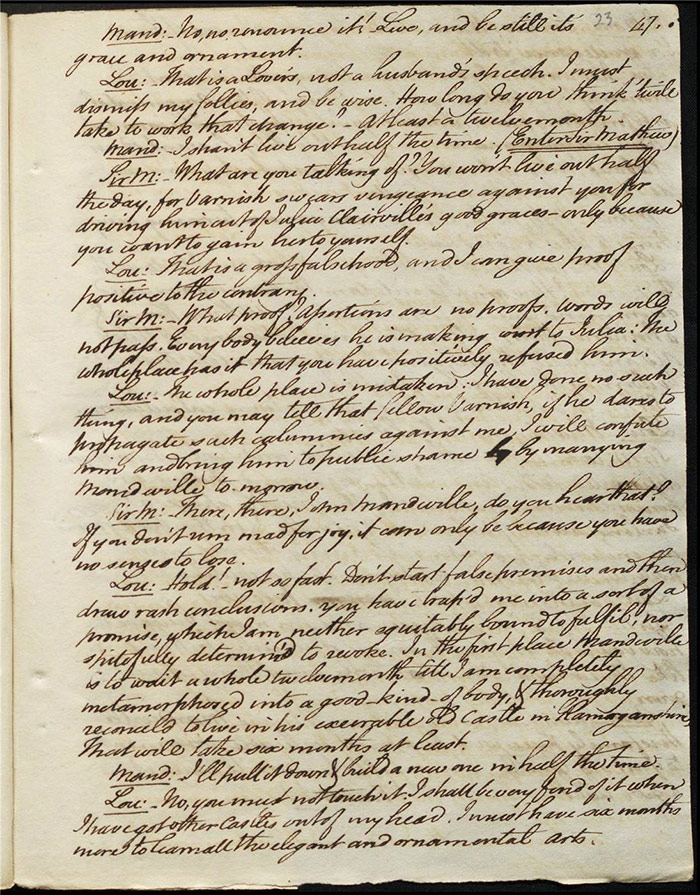 23 47.
Mand:- No, no, renounce it! Live, and be still its
grace and ornament.
Lou:- That is a Lover's, not a husband's speech. I must
dismiss my follies, and be wise. How long do you think 'twile
take to work that change? - At least a twelvemonth.
Mand:- I shan't live out half the time. (Enter Sir Mathew)
Sir M:- What are you talking of? You won't live out half
the day, for Varnish swears vengeance against you for
driving him out of Julia Clairville's good graces - only because
you want to gain her to yourself.
Lou: That is a gross falsehood, and I can give proof
positive to the contrary.
Sir M:- What proof? Assertions are no proofs. Words will
not pass. Every body believes he is making court to Julia: The
whole place has it that you have positively refused him.
Lou:- The whole place is mistaken. I have done no such
thing, and you may tell that fellow Varnish, if he dares to
propagate such calumnies against me, I will confute
him and bring him to public shame by marrying
Mandville to-morrow.
Sir M:- There, there, John Mandville, do you hear that?
If you don't run mad for joy, it can only be because you have
no senses to lose.
Lou: Hold! - not so fast. Don't start false premises and then
draw rash conclusions. You have trap'd me into a sort of a
promise, which I am neither equitably bound to fulfil, nor
spitefully determin'd to revoke. In the first place Mandville
is to wait a whole twelvemonth till I am completely
metamorphosed into a good-kind-of body, & thoroughly
reconcil'd to live in his execrable old Castle in
That will take six months at least.
Mand: I'll pull it down & build a new one in half the time.
Lou:- No, you must not touch it. I shall be very fond of it when
I have got other Castles out of my head. I must have six months
more to learn all the elegant and ornamental arts.